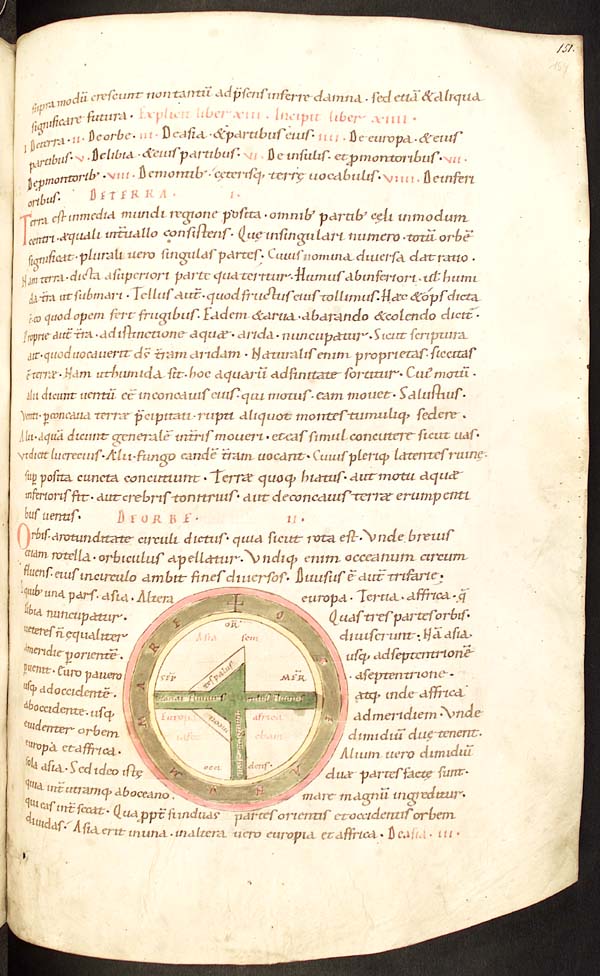 151.
supra modū crescunt non tantū ad p̄sens inferre damna · sed etiā & aliqua
significare futura · Explicit liber xiii · Incipit liber xiiii ·
i Deterra · ii · Deorbe · iii · Deasia · & partibus eius · iiii · De europa · & eius
partibus · v · Delibia · & eius partibus · vi · De insulis · et pmontoribus · vii ·
Depmontorib · viii · Demontib · ceterisq terrę vocabulis · viiii · De inferi
oribus · DETERRA · i ·
Terra est inmedia mundi regione posita · omnib partib cęli inmodum
centri · æquali intuallo consistens · Quę insingulari numero · totū orbē
significat · plurali uero singulas partes · Cuius nomina diuersa dat ratio ·
Nam terra · dicta asuperiori parte qua teritur · Humus abinferiori · uł humi
da tra ut submari · Tellus aut · quod fructus eius tollimus · Hæc & ops dicta
ē eo quod opem fert frugibus · Eadem & arua · abarando & colendo dicta ·
Proprie aut tra · adistinctione aquæ · arida · nuncupatur · Sicut scriptura
ait · quod uocauerit ds tram aridam · Naturalis enim proprietas · siccitas
ē terræ · Nam ut humida sit · hoc aquarū adfinitate sortitur · Cuius motū ·
alii dicunt uentū eē inconcauis eius · qui motus · eam mouet · Salustius ·
Venti · pconcaua terræ pcipitati · rupti aliquot montes tumuliq sedere ·
Alii · aquā dicunt generalē intris moueri · et eas simul concutere sicut uas ·
ut dicit lucrecius · Alii · fungo eandē tram uocant · Cuius pleriq latentes ruinę ·
sup posita cuncta concutiunt · Terræ quoq hiatus · aut motu aquæ
inferioris fit · aut crebris tonitruis · aut deconcauis terræ erumpenti
bus uentis · DEORBE · ii ·
Orbis · arotunditate circuli dictus · quia sicut rota est · Vnde breuis
etiam rotella · orbiculus apellatur · Vndiq enim occeanum circum
fluens · eius incirculo ambit fines diuersos · Diuisus ē aut trifarie ·
quib una pars · asia · Altera europa · Tertia · affrica · q
libia nuncupatur · Quas tres partes orbis ·
ueteres ñ ęqualiter diuiserunt · Nā asia ·
ameridie porientē · usq adseptentrionē
puenit · Euro pa uero aseptentrione ·
usq adoccidentē · atq inde affrica
aboccidente · usq admeridiem · Vnde
euidenter orbem dimidiū duę tenent ·
europa et affrica · Alium uero dimidiū
sola asia · Sed ideo istę duæ partes factę sunt ·
quia int utramq aboceano · mare magnū ingreditur ·
qui eas int secat · Qua ppt si induas partes orientis et occidentis orbem
diuidas · Asia erit in una · inaltera uero europia et affrica · Deasia · iii ·
MARE OCEANVM
ORI
Asia sem
SEP
MER
tanai fluuius nilus fluuius
Europa
affrica
iafet
cham
occi dens ·